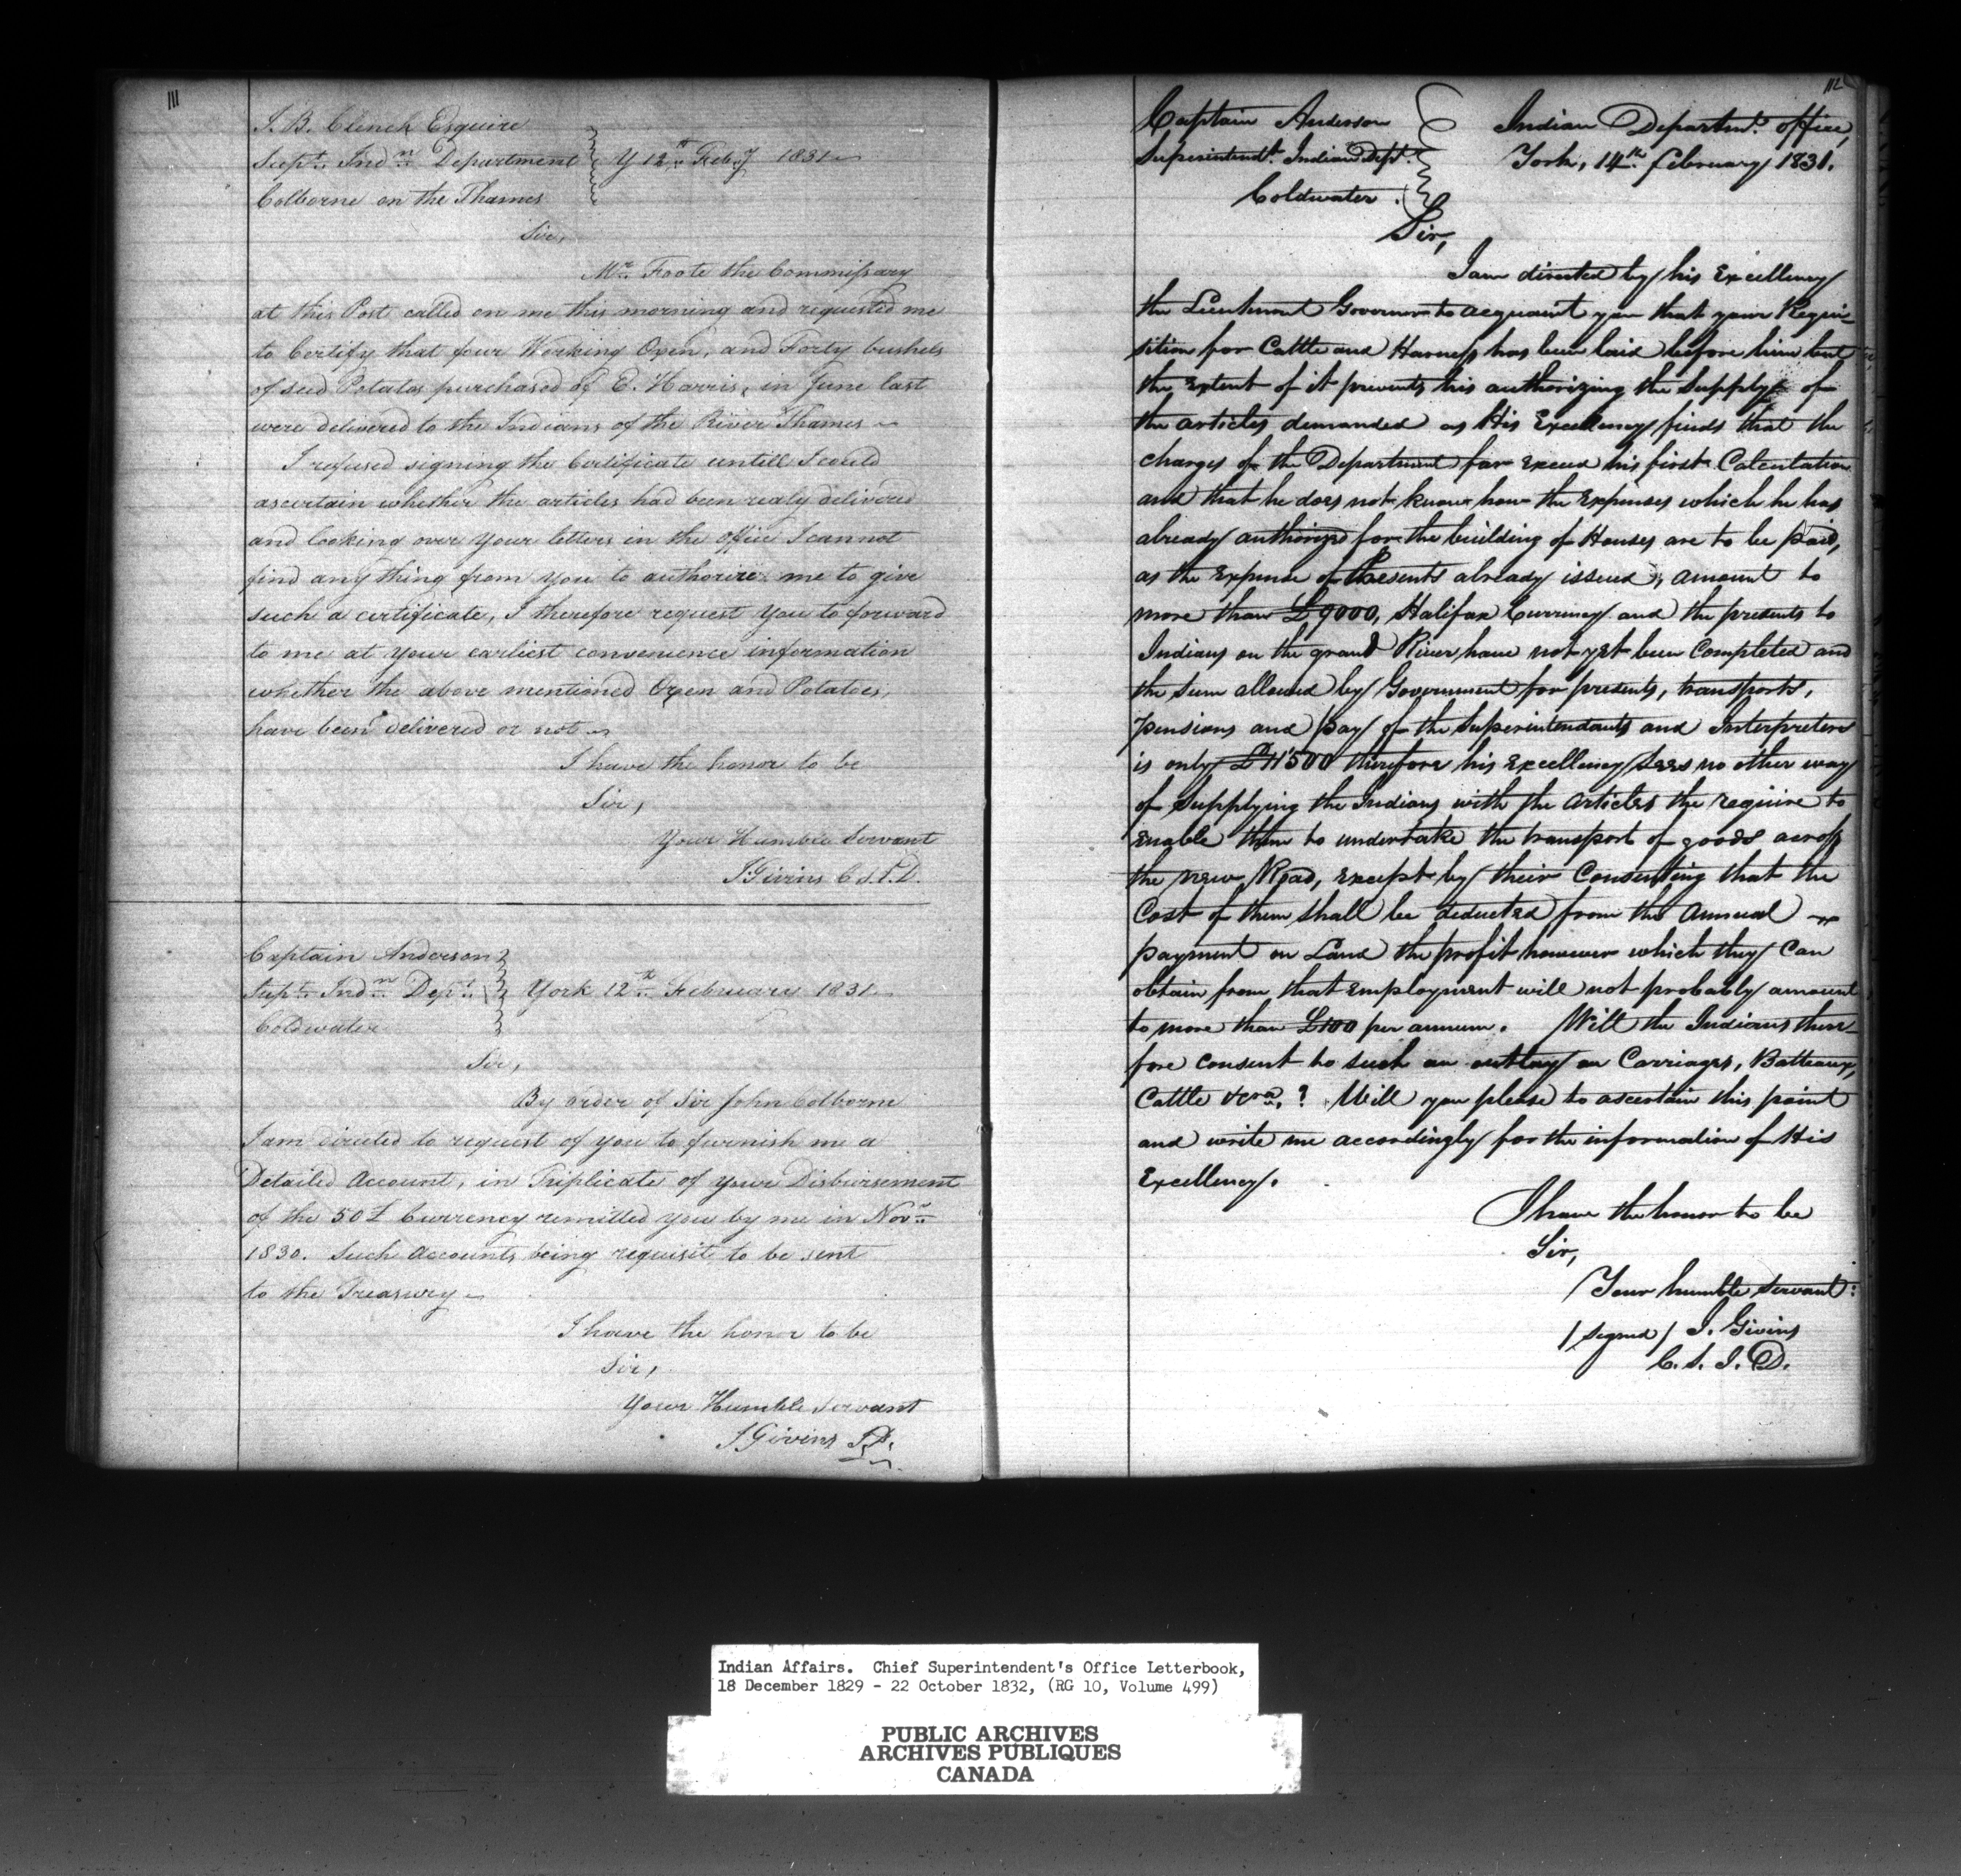 111
J. B. Clench Esquire
Supt. Indn Department } Y 12th Feby 1831
Colborne on the Thames
Sir,
Mr. Foote the Commissary
at this Post called on me this morning and requested me
to Certify that four Working Oxen, and Forty bushels
of seed Potatos purchased of E. Harris, in June last
were delivered to the Indians of the River Thames
I refused signing the Certificate untill I could
ascertain whether the articles had been realy delivered
and looking over your letters in the office I cannot
find any thing from you to authorize me to give
such a certificate, I therefore request you to forward
to me at your earliest convenience information
whether the above mentioned Oxen and Potatoes,
have been delivered or not
I have the honor to be
Sir,
Your Humble Servant
J Givins C S. I. D.
Captain Anderson
Supt. Indn Dept. } York 12th February 1831
Coldwater
Sir,
By order of Sir John Colborne
I am directed to request of you to furnish me a
Detailed Account, in Triplicate of your Disbursement
of the 50£ Currency remitted you by me in Novr
1830. Such Accounts being requisit to be sent
to the Treasury
I have the honor to be
Sir,
Your Humble Servant
J Givins
112
Captain Anderson } Indian Departmt. office,
Superintendt. Indian Dept. York, 14th february 1831.
Coldwater.
Sir,
I am directed by his Excellency
the Lieutenant Governor to acquaint you that your Requi-
sition for Cattle and Harness has been laid before him but
the extent of it prevents his authorizing the Supply of
the articles demanded as His Excellency finds that the
charges of the Department far exceed his first Calculation
and that he does not know how the Expenses which he has
already authorized for the building of Houses are to be paid,
as the Expense of Presents already issued, amount to
more than £9000, Halifax Currency and the presents to
Indians on the grand River have not yet been Completed and
the Sum allowed by Government for presents, transports,
pensions and pay of the Superintendants and Interpreters
is only £11500 therefore his Excellency sees no other way
of Supplying the Indians with the Articles the require to
enable them to undertake the transport of goods across
the new Road, except by their Consenting that the
Cost of them shall be deducted from the Annual
payment on Land the profit however which they Can
obtain from that employment will not probably amount
to more than £100 per annum. Will the Indians there-
fore consent to such an outlay on Carriages, Batteaux,
Cattle &cra,? Will you please to ascertain this point
and write me accordingly for the information of His
Excellency.
I have the honor to be
Sir,
Your humble Servant:
/signed/ J. Givins
C. S. I. D.
Indian Affairs. Chief Superintendent's Office Letterbook,
18 December 1829 - 22 October 1832, (RG 10, Volume 499)
PUBLIC ARCHIVES
ARCHIVES PUBLIQUES
CANADA